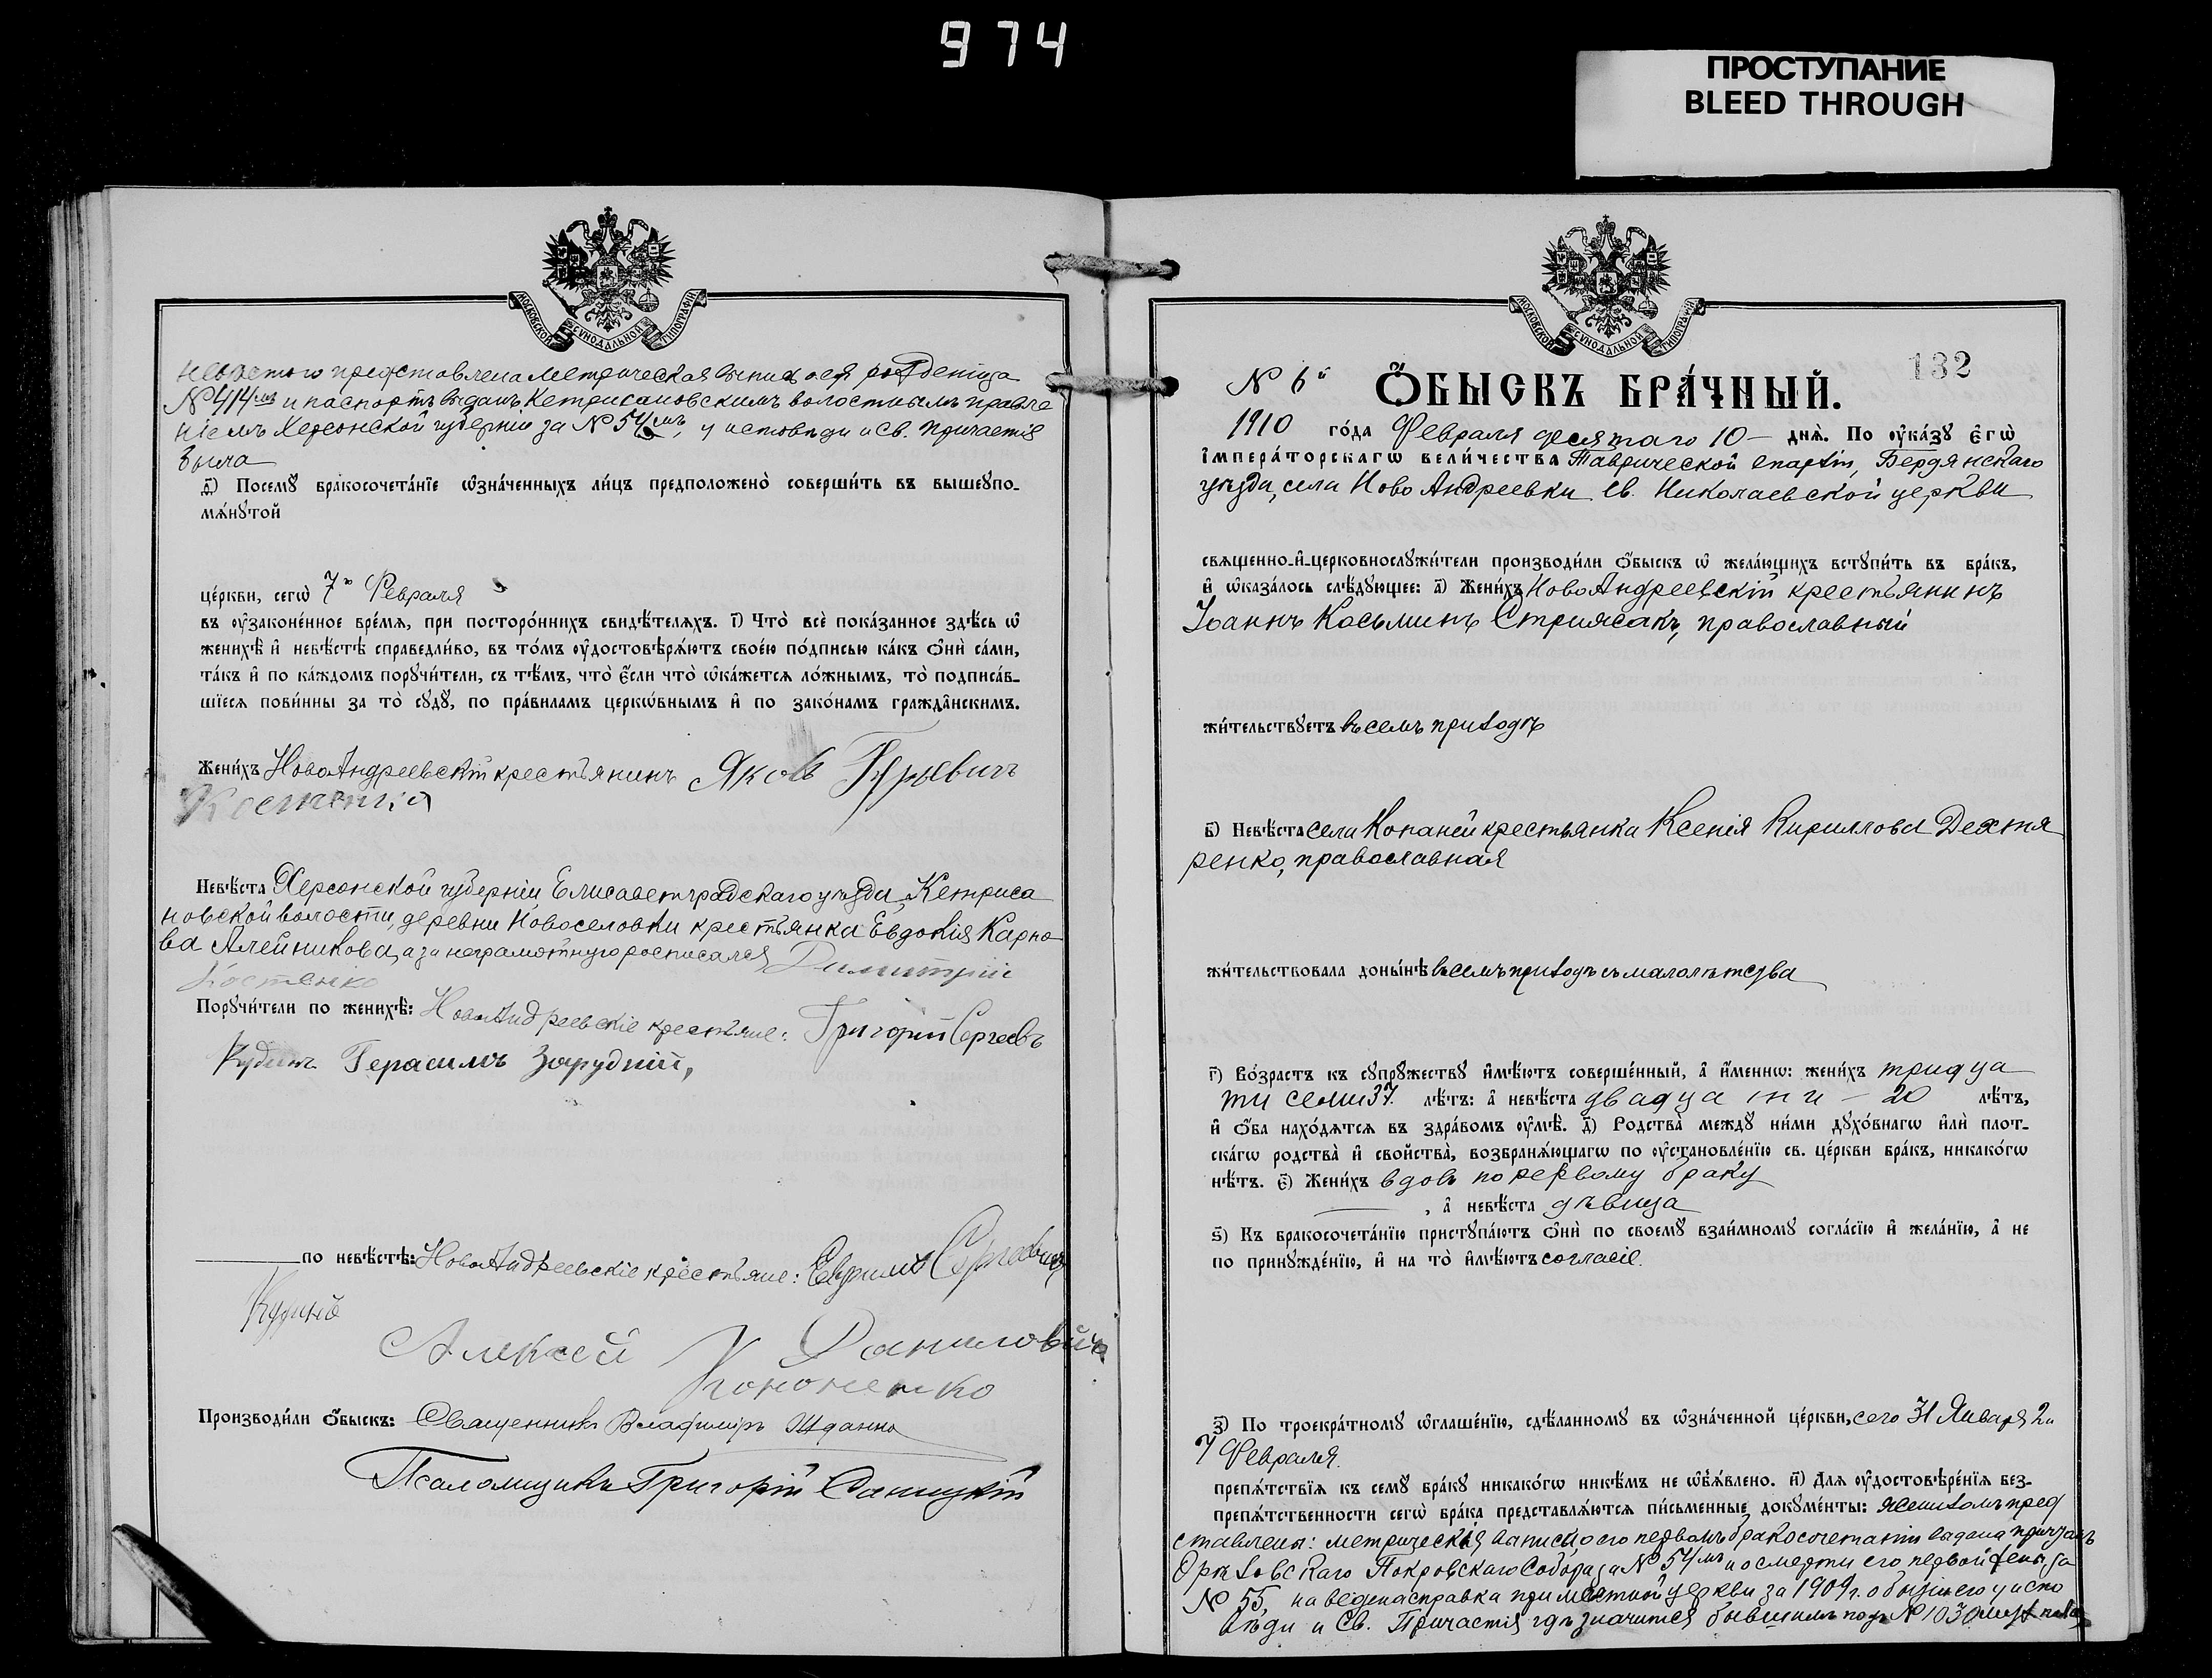 974
ПРОСТУПАНИЕ
BLEED THROUGH
МОСКОВСКОЙ СѴНОДАЛЬНОЙ ТИПОГРАФІИ
невѣстою представлена метрическая выпись о ея рожденіи за
№ 414мъ и паспортъ выданъ Кетрисановскимъ волостнымъ правле
ніемъ Херсонской губерніи за № 54мъ, у исповѣди и Св. Причастія
была
д҃) Посемꙋ бракосочета́нїе ѡзна́ченныхъ ли́цъ предположено̀ соверши́ть въ вышеꙋпо-
мѧ́нꙋтой
це́ркви, сегѡ̀ 7го Февраля
въ ᲂу҆законе́нное вре́мѧ, при посторо́ннихъ свидѣ́телѧхъ. г҃) Что̀ всѐ пока́занное здѣ́сь ѡ҆
женихѣ̀ и҆ невѣ́стѣ справедли́во, въ то́мъ ᲂу҆достовѣрѧ́ютъ свое́ю по́дписью ка́къ ѻ҆нѝ са́ми,
та́къ и҆ по ка́ждомъ порꙋчи́тели, съ тѣ́мъ, что̀ є҆́сли что̀ ѡ҆ка́жетсѧ ло́жнымъ, то̀ подписа́в-
шїесѧ пови́нны за то̀ сꙋдꙋ̀, по пра́виламъ церкѡ́внымъ и҆ по зако́намъ гражда̂нскимъ.
Жени́хъ НовоАндреевскій крестьянинъ Яковъ Гурьевичъ
Костенко
Невѣ́ста Херсонской губерніи, Елисаветградскаго уѣзда, Кетриса
новской волости, деревни Новоселовки крестьянка Евдокія Карпо
ва Алейникова, а за неграмотную росписался Димитрій
Костенко
Порꙋчи́тели по женихѣ̀: НовоАндреевскіе крестьяне: Григорій Сергеевъ
Кудинъ Герасимъ Зарудній,
по невѣ́стѣ: НовоАндреевскіе крестьяне: Сергеевичъ
Кудинъ
Алексей Даниловичъ
Кононенко
Производи́ли ѻ҆́быскъ: Священникъ Владиміръ
Псаломщикъ Григорій
МОСКОВСКОЙ СѴНОДАЛЬНОЙ ТИПОГРАФІИ
132
№ 6й
Ѻ҆́БЫСКЪ БРА́ЧНЫЙ.
1910 го́да Февраля десятаго 10 – днѧ̀. По ᲂу҆ка́зꙋ є҆гѡ̀
і҆мпера́торскагѡ вели́чества Таврической епархіи, Бердянскаго
уѣзда, села Ново Андреевки Св. Николаевской церкви
сващенно-и҆-церковнослꙋжи́тели производи́ли ѻ҆́быскъ ѡ҆ жела́ющихъ встꙋпи́ть въ бра́къ,
и҆ ѡ҆каза́лось слѣ́дꙋющее: а҃) Жени́хъ НовоАндреевскій крестьянинъ
Іоаннъ Косьминъ Стриясакъ, православный
жи́тельствꙋетъ въ семъ приходѣ
в҃) Невѣ́ста села Копаней крестьянка Ксенія Кириллова Дехтя
ренко, православная
жи́тельствовала доны́нѣ въ семъ приходѣ съ малолѣтства
г҃) Во́зрастъ къ сꙋпрꙋ́жествꙋ и҆мѣ́ютъ соверше́нный, а҆ и҆́меннѡ: жени́хъ тридца
ти семи 37. лѣ́тъ: а҆ невѣ́ста двадцати – 20 лѣ́тъ,
и҆ ѻ҆́ба нахо́дѧтсѧ въ здра́вомъ ᲂу҆мѣ̀. д҃) Родства̀ междꙋ̀ ни́ми дꙋхо́внагѡ и҆лѝ плот-
ска́гѡ родства̀ и҆ свойства̀, возбранѧ́ющагѡ по ᲂу҆становле́нїю св. це́ркви бра́къ, никако́гѡ
нѣ́тъ. є҃) Жени́хъ вдовъ по первому браку
, а҆ невѣ́ста дѣвица
ѕ҃) Къ бракосочета́нїю пристꙋпа́ютъ ѻ҆нѝ по своемꙋ̀ взаи́мномꙋ согла́сїю и҆ жела́нїю, а҆ не
по принꙋжде́нїю, и҆ на то̀ и҆мѣ́ютъ согласіе.
з҃) По троекра́тномꙋ ѡ҆глаше́нїю, сдѣ́ланномꙋ въ ѡ҆зна́ченной це́ркви, сего 31 Января 2 и
7 Февраля.
препѧ́тствїѧ къ семꙋ̀ бра́кꙋ никако́гѡ никѣ́мъ не ѡ҆б̾ѧ́влено. и҃) Длѧ ᲂу҆достовѣре́нїѧ без-
препѧ́тственности сегѡ̀ бра́ка представлѧ́ютсѧ пи́сьменные докꙋме́нты: женихомъ пред
ставлены: метрическія выписи о его первомъ бракосочетаніи выдана причтомъ
Орѣховскаго Покровскаго Собора за № 54мъ и о смерти его первой жены за
№ 55, наведена справка при местной церкви за 1909 г. о бытіи его у испо
вѣди и Св. Причастія гдѣ значится бывшимъ подъ № 1030